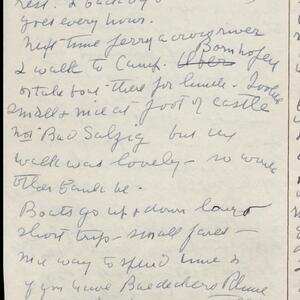 rest. & back by
goes every hour.
Next time ferry across river
& walk to Camp. Bornhofen
or take boat there for lunch. Looked
small & nice at foot of castle
not Bad Salzig but my
walk was lovely – so would
other bank be.
Boats go up & down long &
short trip – small fares –
nice way to spend time is
if you have Baedeckers Rhine